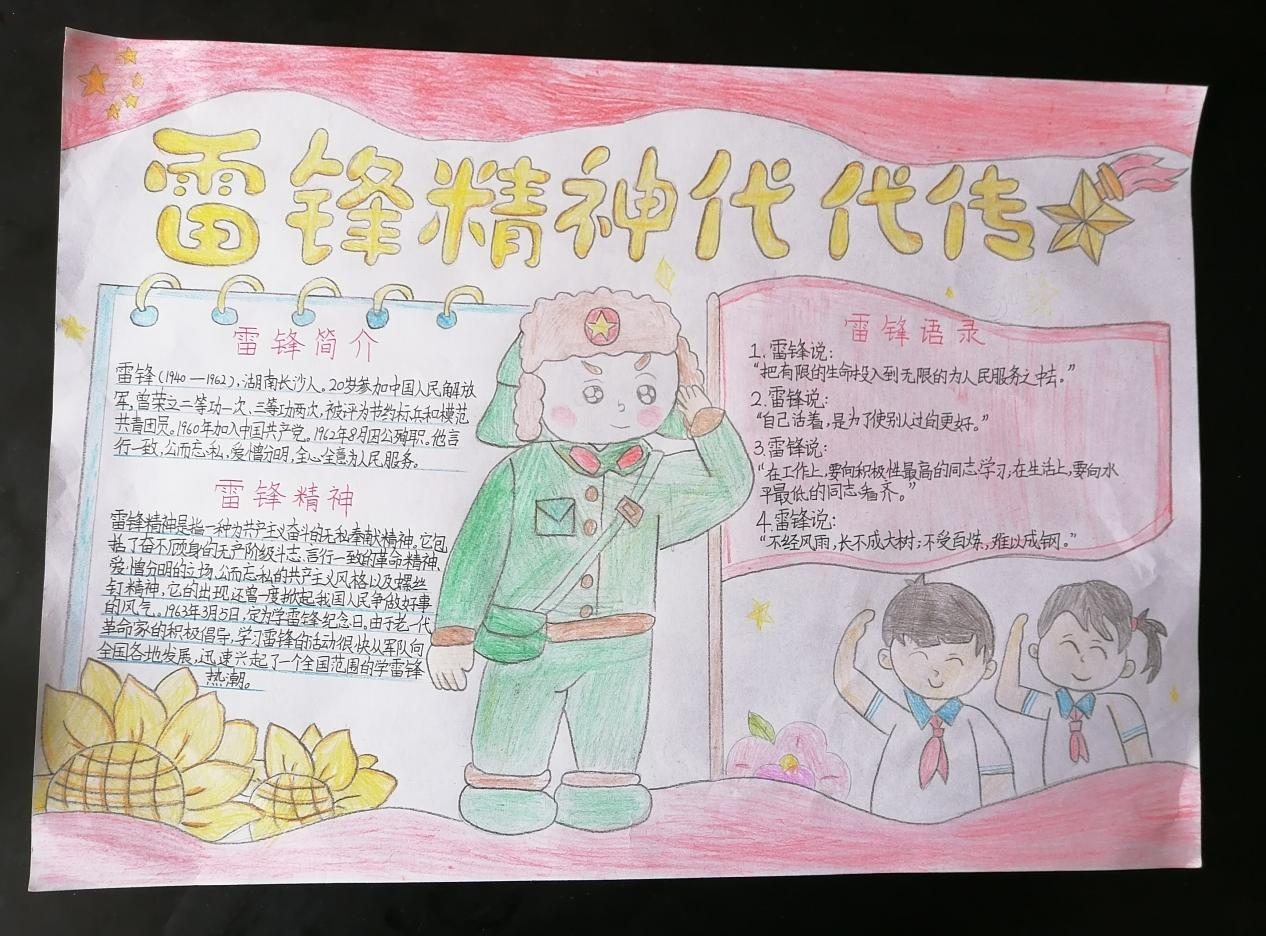 雷锋精神代代传
雷锋简介
雷锋(1940—1962),湖南长沙人。20岁参加中国人民解放
军,曾荣立二等功一次,三等功两次,被评为节约标兵和模范
共青团员。1960年加入中国共产党。1962年8月因公殉职。他言
行一致,公而忘私,爱憎分明,全心全意为人民服务。
雷锋精神
雷锋精神是指一种为共产主义奋斗的无私奉献精神,它包
括了奋不顾身的无产阶级斗志、言行一致的革命精神、
爱憎分明的立场、公而忘私的共产主义风格以及螺丝
钉精神,它的出现还曾一度掀起我国人民争做好事
的风气。1963年3月5日,定为学雷锋纪念日。由于老一代
革命家的积极倡导,学习雷锋的活动很快从军队向
全国各地发展,迅速兴起了一个全国范围的学雷锋
热潮。
雷锋语录
1.雷锋说:
“把有限的生命投入到无限的为人民服务之中去。”
2.雷锋说:
“自己活着,是为了使别人过的更好。”
3.雷锋说:
“在工作上,要向积极性最高的同志学习;在生活上,要向水
平最低的同志看齐。”
4.雷锋说:
“不经风雨,长不成大树;不受百炼,难以成钢。”